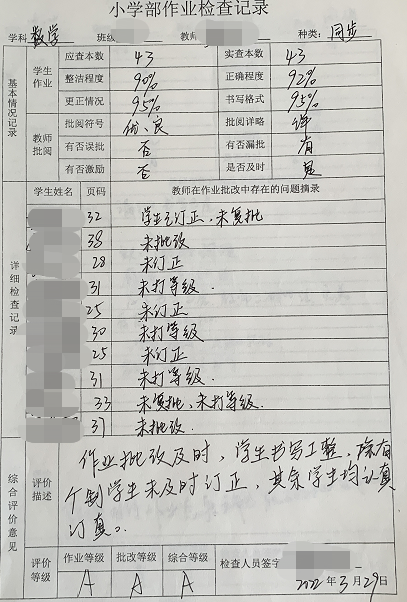 小学部作业检查记录
学科 数学 班级 教师 种类：同步
基本情况记录
学生作业 应查本数 43 实查本数 43
整洁程度 90% 正确程度 92%
更正情况 95% 书写格式 95%
教师批阅 批阅符号 优、良 批阅详略 详
有否误批 否 有否漏批 有
有否激励 否 是否及时 是
详细检查记录
学生姓名 页码 教师在作业批改中存在的问题摘录
32 学生已订正，未复批
38 未批改
28 未订正
31 未打等级.
25 未订正
30 未打等级
25 未订正
31 未打等级.
33 未复批、未打等级.
37 未批改.
综合评价意见
评价描述
作业批改及时，学生书写工整，除有
个别学生未及时订正，其余学生均认真
订真。
评价等级 作业等级 批改等级 综合等级 检查人员签字
A A A 2022年3月29日